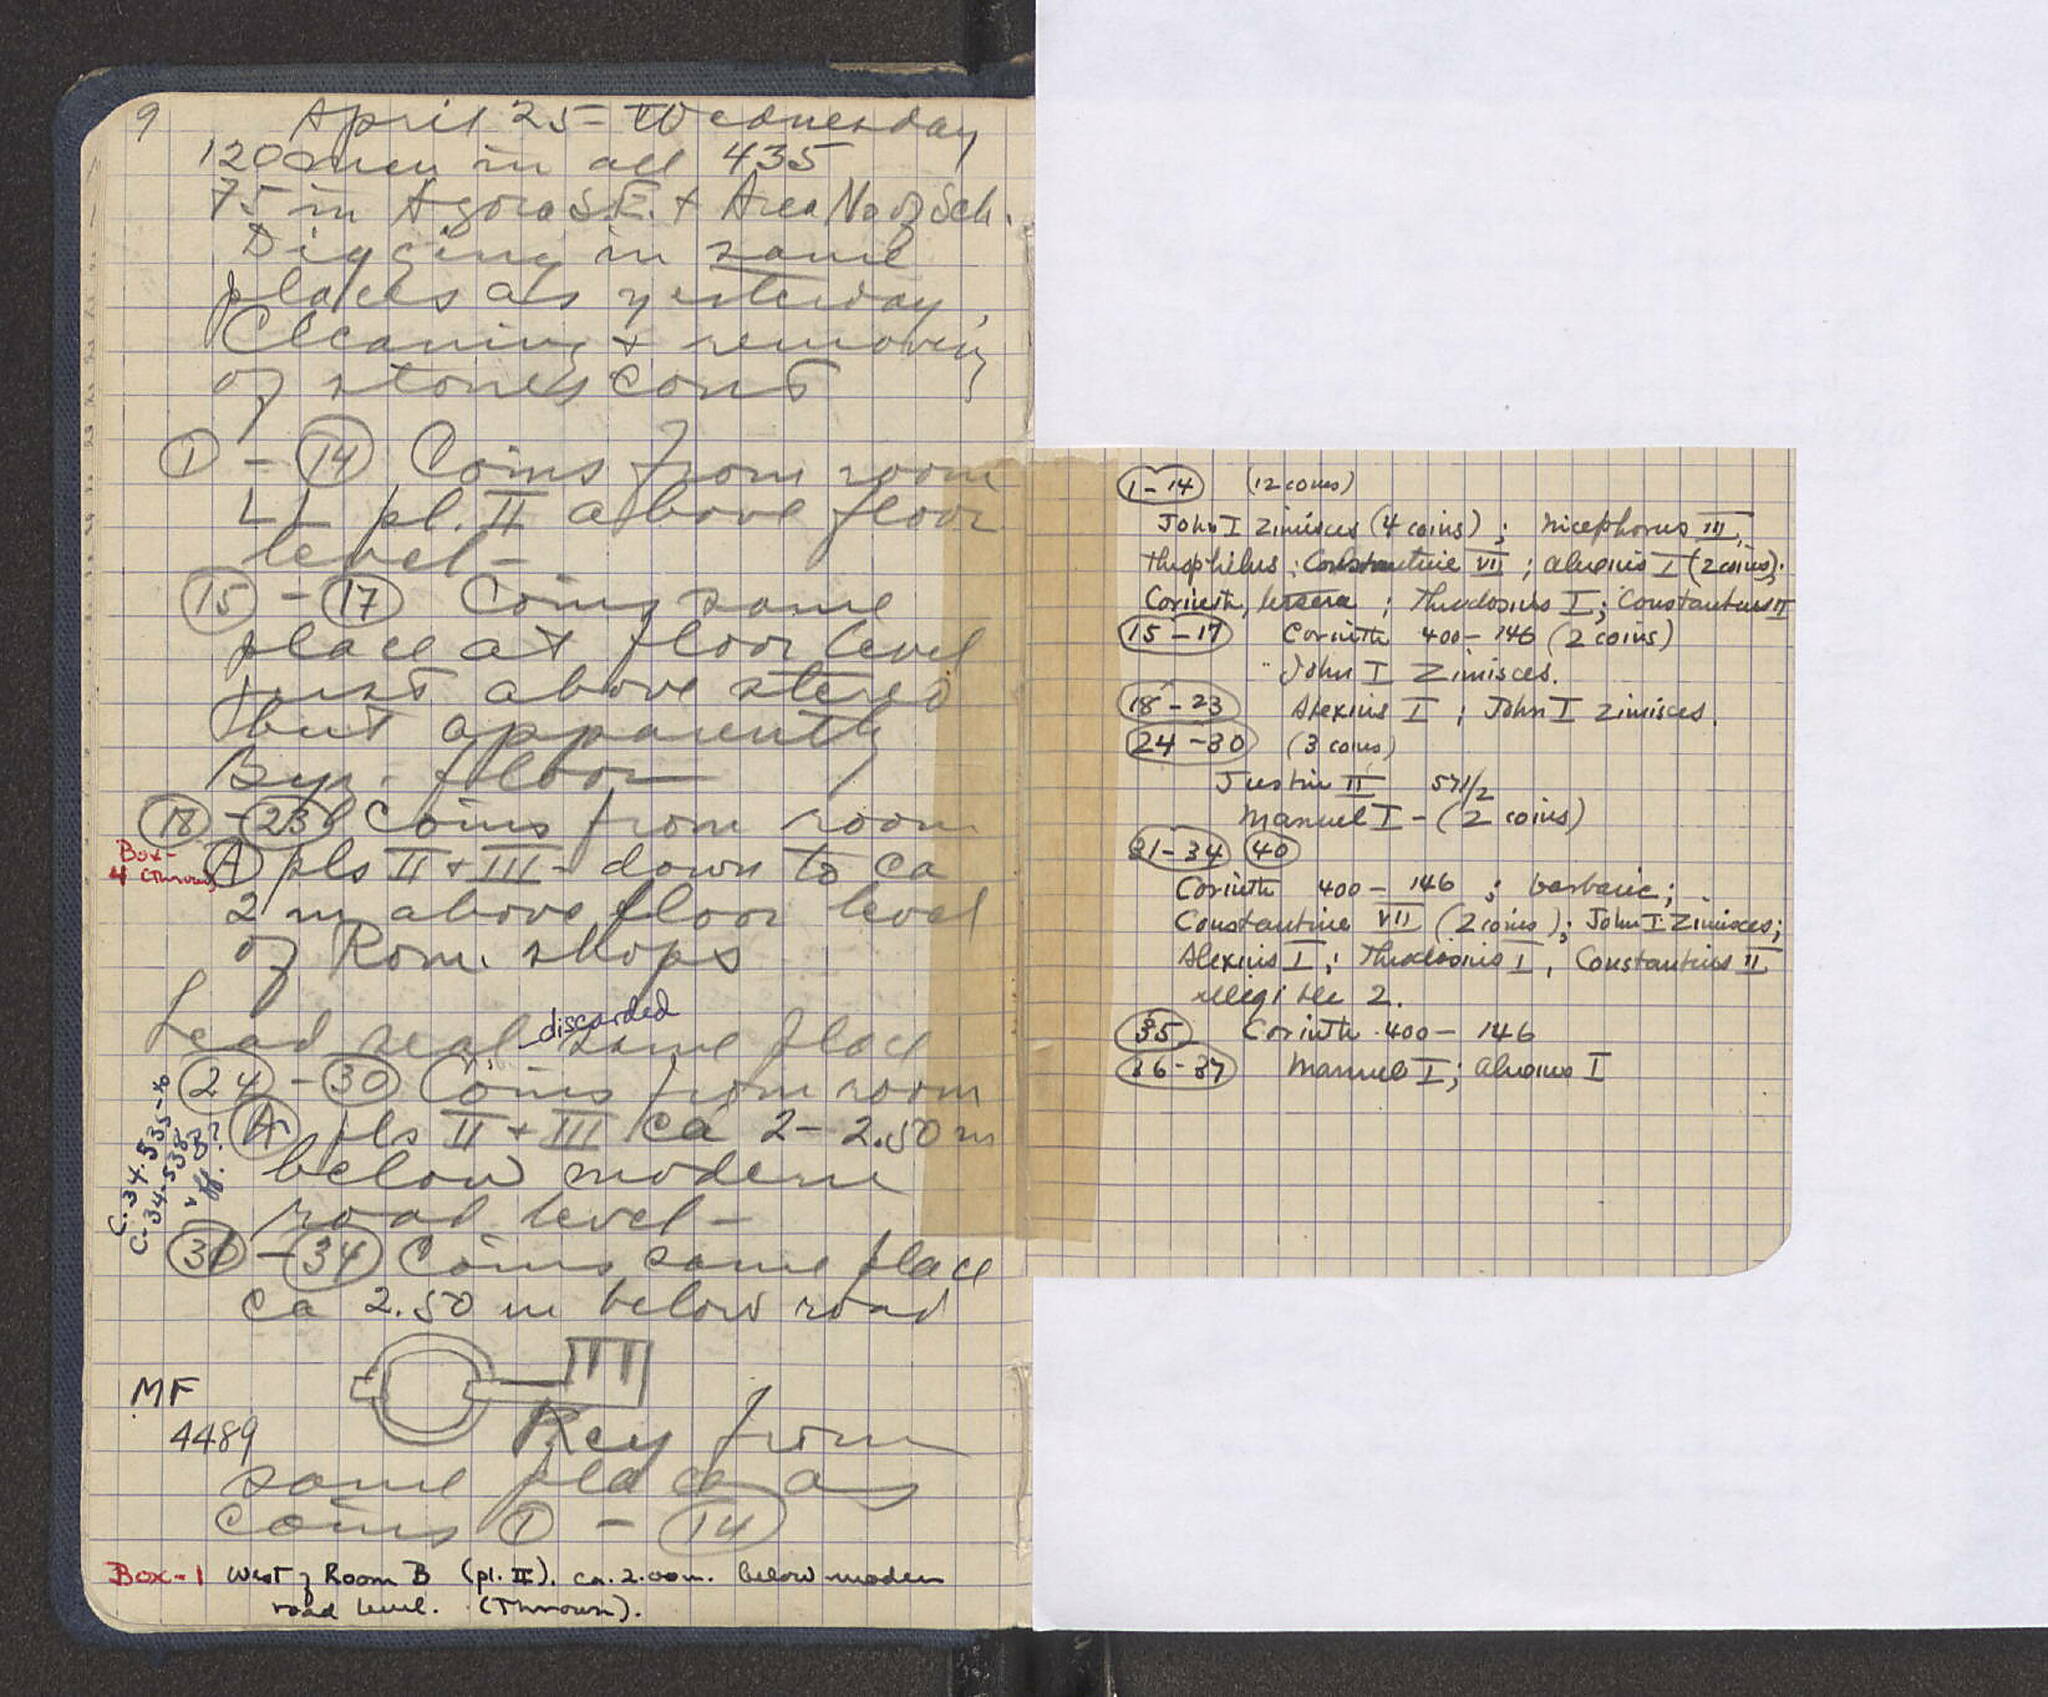 9
April 25 – Wednesday
120 men in all 435
75 in Agora S.E. + Area No of Sch.
Digging in same
places as yesterday,
Cleaning + removing
of stones cont
1 – 14 Coins from room
LL pl. II above floor
level –
15 – 17 Coins same
place at floor level
just above stereo
but apparently
Byz. floor
18 – 23 Coins from room
Box-
4 (Thrown)
A pls II + III – down to ca
2 m above floor level
of Rom. shops
discarded
Lead seal same place
24 – 30 Coins from room
A pls II + III ca 2 – 2.50 m
below modern
road level –
C.34.535-6
C.34-538
31 – 34 Coins same place
ca 2.50 m below road
MF
4489
Key from
same place as
coins 1 – 14
Box-1 West of Room B (pl. II). ca. 2.00m. below modern
road level. (Thrown).
1-14 (12 coins)
John I Zimisces (4 coins); Nicephorus III,
Theophilus; Constantine VII; Alexius I (2 coins);
Corinth, tessera; Theodosius I; Constantius II
15-17 Corinth 400-146 (2 coins)
John I Zimisces.
18-23 Alexius I; John I Zimisces.
24-30 (3 coins)
Justin II 571/2
Manuel I – (2 coins)
31-34 40
Corinth 400-146; barbaric;
Constantine VII (2 coins); John I Zimisces;
Alexius I; Theodosius I, Constantius II
illegible 2.
35 Corinth 400-146
36-37 Manuel I; Alexius I